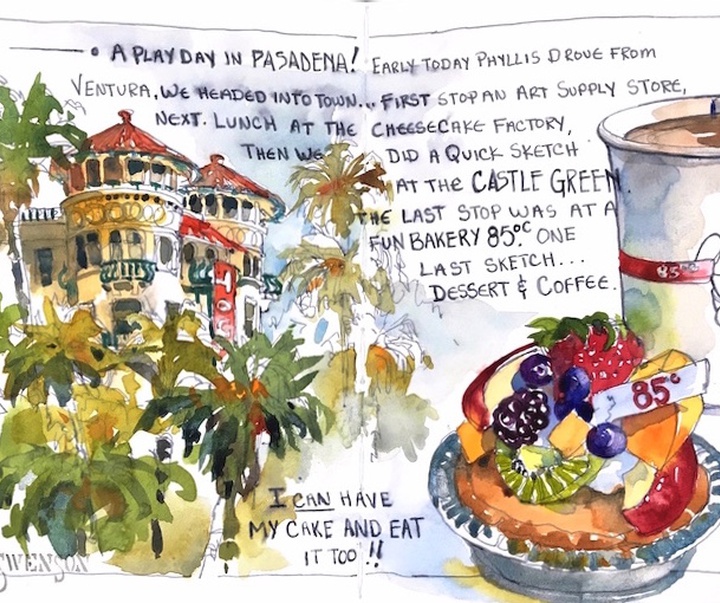 • A PLAY DAY IN PASADENA! EARLY TODAY PHYLLIS DROVE FROM
VENTURA, WE HEADED INTO TOWN... FIRST STOP AN ART SUPPLY STORE,
NEXT. LUNCH AT THE CHEESECAKE FACTORY,
THEN WE DID A QUICK SKETCH
AT THE CASTLE GREEN.
THE LAST STOP WAS AT A
FUN BAKERY 85°C ONE
LAST SKETCH...
DESSERT & COFFEE.
85°C
85°
I CAN HAVE
MY CAKE AND EAT
IT TOO!!
SWENSON